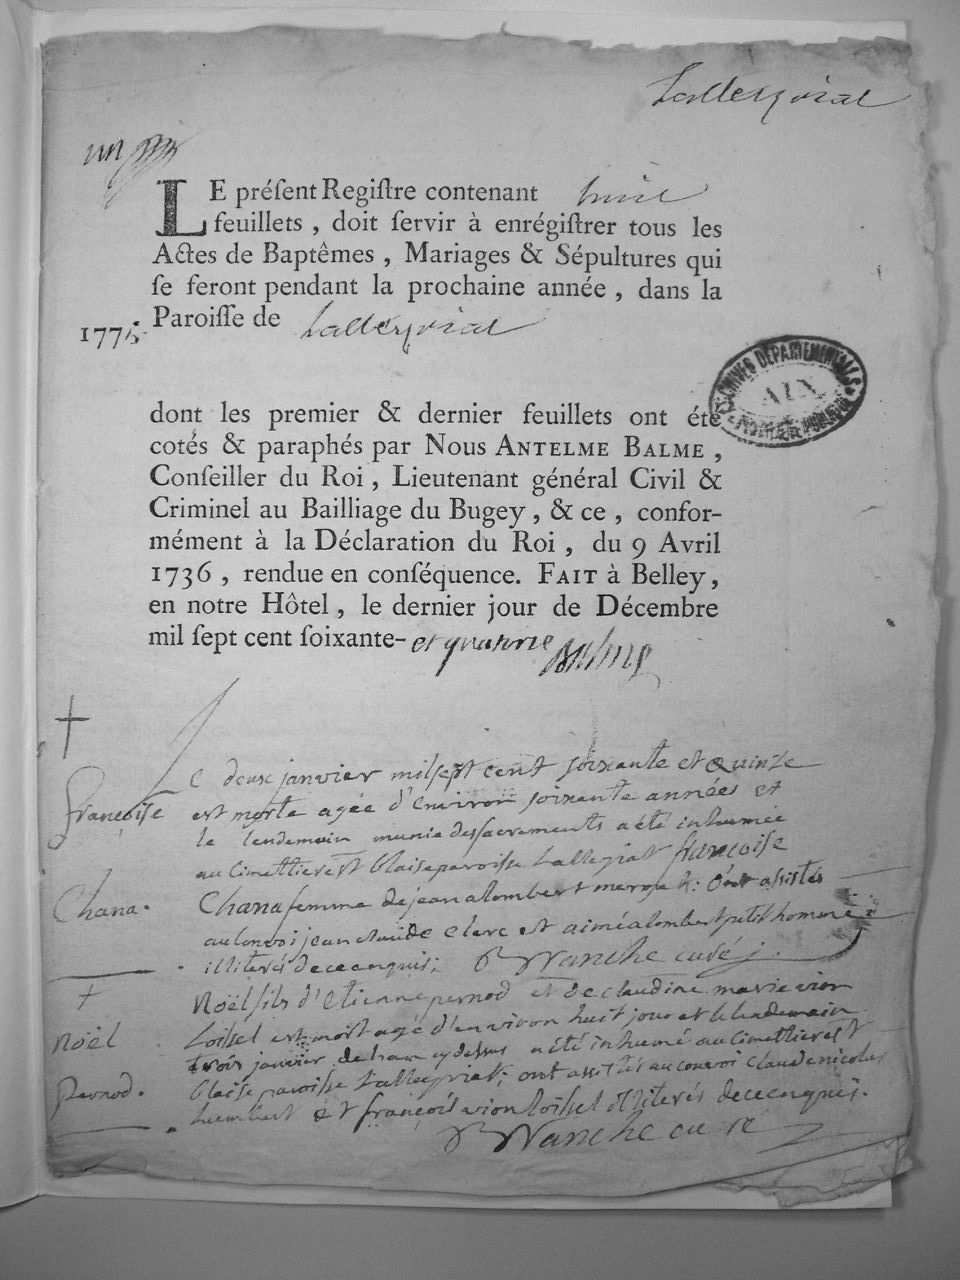 Lalleyriat
un
LE préſent Regiſtre contenant huit
feuillets, doit ſervir à enrégiſtrer tous les
Actes de Baptêmes, Mariages & Sépultures qui
ſe feront pendant la prochaine année, dans la
1775 Paroiſſe de Lalleyriat
ARCHIVES DÉPARTEMENTALES
AIN
dont les premier & dernier feuillets ont été
cotés & paraphés par Nous ANTELME BALME,
Conſeiller du Roi, Lieutenant général Civil &
Criminel au Bailliage du Bugey, & ce, confor-
mément à la Déclaration du Roi, du 9 Avril
1736, rendue en conſéquence. FAIT à Belley,
en notre Hôtel, le dernier jour de Décembre
mil ſept cent ſoixante- et quatorze Balme
Le deux janvier mil sept cent soixante et Quinze
Françoise est morte agée d'environ soixante années et
le lendemain munie des sacrements a été inhumée
au Cimettiere st blaise paroisse Lallegriat françoise
Chana. Chana femme de jean alombert : Ont assistés
au convoi jean claude clerc et aimé alombert petit homme
illiterés de ce enquis; Blanche curé
Noël fils d'Etienne pernod et de claudine marie vion
Noël Loissel est mort agé d'environ huit jour et le lendemain
trois janvier de l'an cy dessus a été inhumé au Cimettiere st
Pernod. blaise paroisse Lalleyriat; ont assistés au convoi claude nicolas
humbert et françois vion loissel illiterés de ce enquis.
Blanche curé